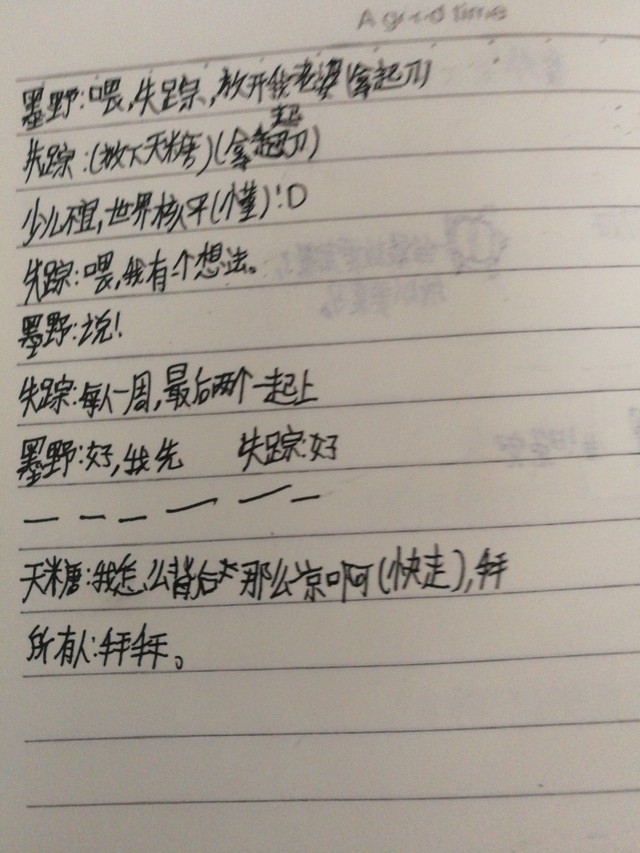 A good time
墨野:喂,失踪,放开我老婆(拿起刀)
失踪:(放下天米唐)(拿起刀)
少儿不宜,世界核平(懂)!D
失踪:喂,我有个想法。
墨野:说!
失踪:每人一周,最后两个一起上
墨野:好,我先 失踪:好
天米唐:我怎么背后那么凉啊(快走),拜
所有人:拜拜。